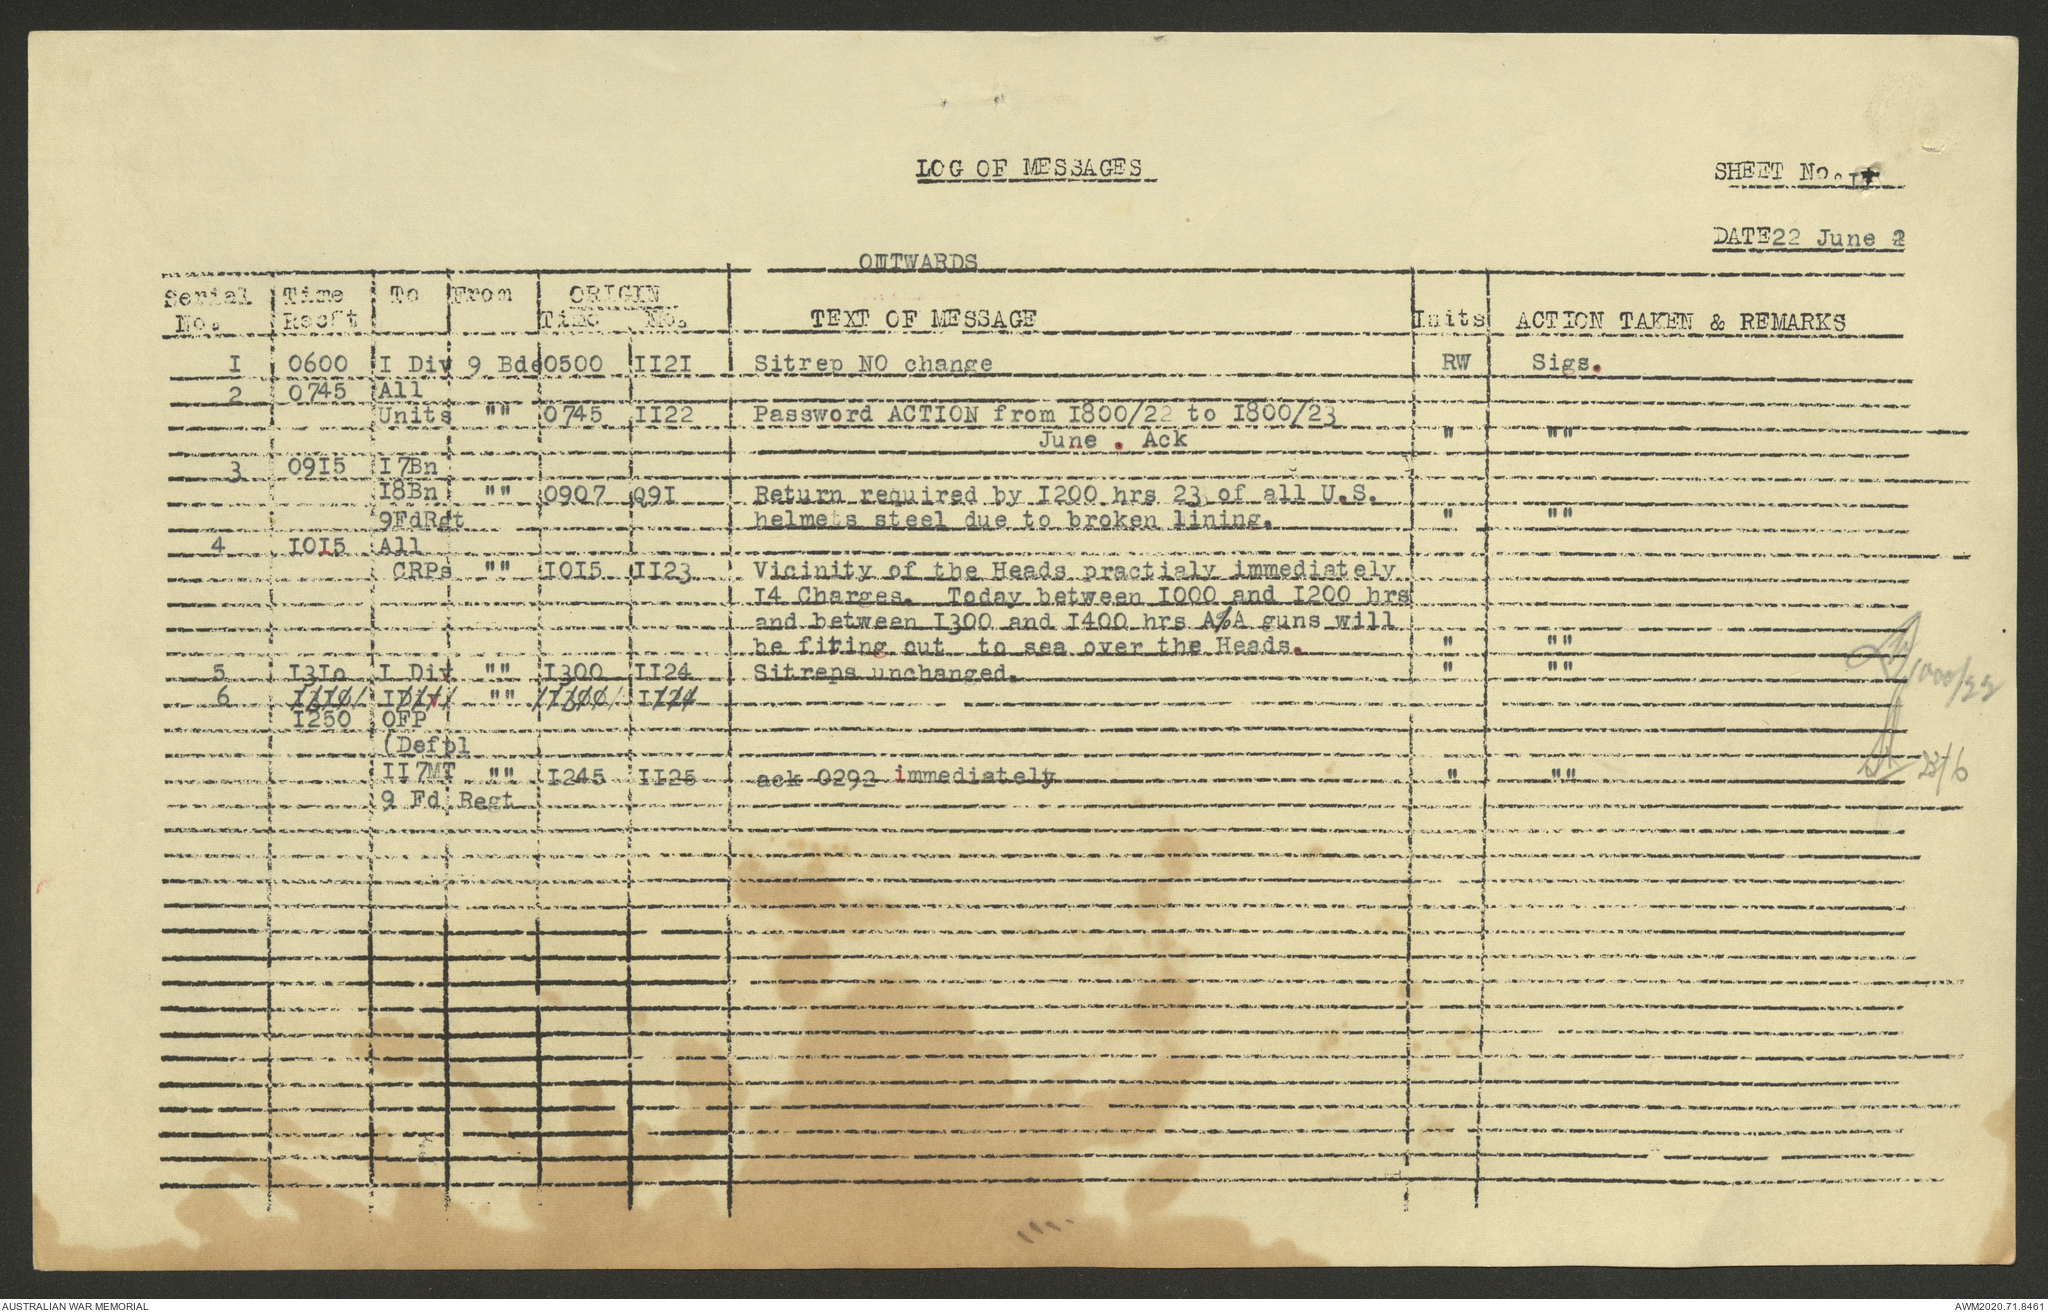 LOG OF MESSAGES
SHEET No.
DATE 22 June 2
OUTWARDS
Serial No. Time Rec't To From ORIGIN Time No. TEXT OF MESSAGE Inits ACTION TAKEN & REMARKS
I 0600 I Div 9 Bde 0500 II2I Sitrep NO change RW Sigs.
2 0745 All
Units "" 0745 II22 Password ACTION from I800/22 to I800/23
June . Ack " ""
3 09I5 I7Bn
I8Bn "" 0907 Q9I Return required by I200 hrs 23 of all U.S.
9FdRgt helmets steel due to broken lining. " ""
4 I0I5 All
CRPs "" I0I5 II23 Vicinity of the Heads practialy immediately
I4 Charges. Today between I000 and I200 hrs
and between I300 and I400 hrs A/A guns will
be firing out to sea over the Heads. " ""
5 I3Io I Div "" I300 II24 Sitreps unchanged. " ""
6 I Div "" II24
I250 OFP
(Defpl
II7MT "" I245 II25 ack 0292 immediately " ""
9 Fd Regt
1000/22
23/6
AUSTRALIAN WAR MEMORIAL
AWM2020.71.8461